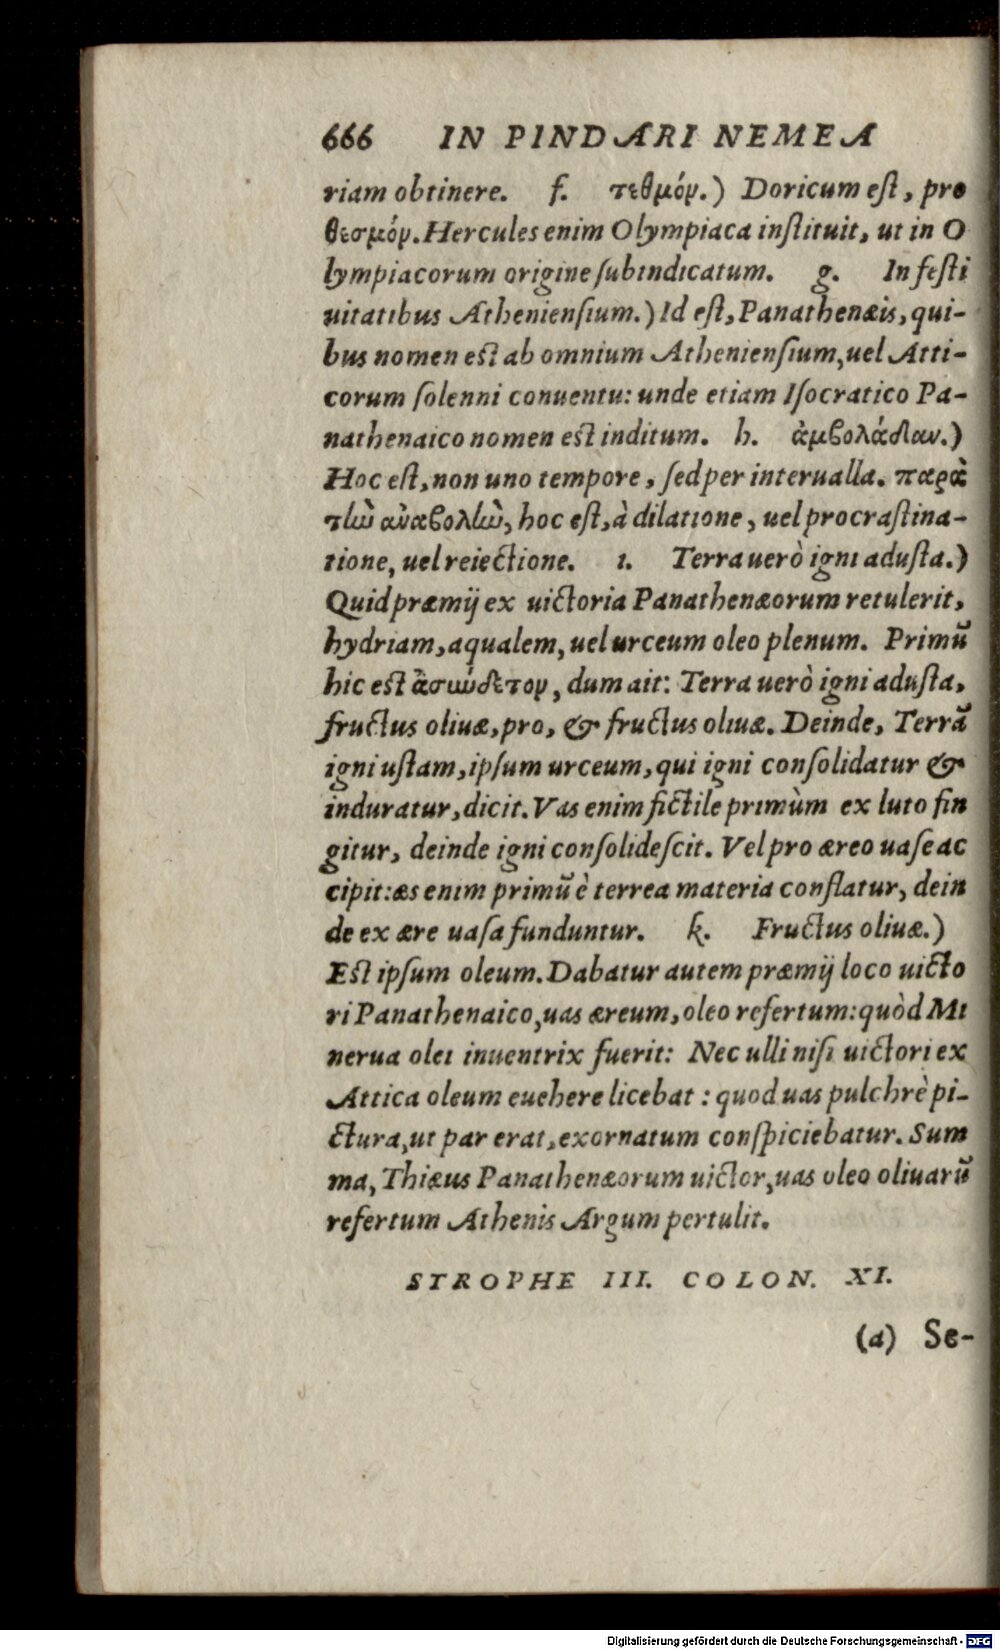 666 IN PINDARI NEMEA
riam obtinere. f. τεθμόν.) Doricum est, pro
θεσμόν. Hercules enim Olympiaca instituit, ut in O
lympiacorum origine subindicatum. g. In festi
uitatibus Atheniensium.) Id est, Panathenæis, qui-
bus nomen est ab omnium Atheniensium, uel Atti-
corum solenni conuentu: unde etiam Isocratico Pa-
nathenaico nomen est inditum. h. ἀμβολάδαν.)
Hoc est, non uno tempore, sed per interualla. παρὰ
τὼ ἀναβολὼ, hoc est, à dilatione, uel procrastina-
tione, uel reiectione. i. Terra uerò igni adusta.)
Quid præmij ex uictoria Panathenæorum retulerit,
hydriam, aqualem, uel urceum oleo plenum. Primũ
hic est ἀσύνδετον, dum ait: Terra uerò igni adusta,
fructus oliuæ, pro, & fructus oliuæ. Deinde, Terrã
igni ustam, ipsum urceum, qui igni consolidatur &
induratur, dicit. Vas enim fictile primùm ex luto fin
gitur, deinde igni consolidescit. Vel pro æreo uase ac
cipit: æs enim primũ è terrea materia conflatur, dein
de ex ære uasa funduntur. k. Fructus oliuæ.)
Est ipsum oleum. Dabatur autem præmij loco uicto
ri Panathenaico, uas æreum, oleo refertum: quòd Mi
nerua olei inuentrix fuerit: Nec ulli nisi uictori ex
Attica oleum euehere licebat: quod uas pulchrè pi-
ctura, ut par erat, exornatum conspiciebatur. Sum
ma, Thiæus Panathenæorum uictor, uas oleo oliuarũ
refertum Athenis Argum pertulit.
STROPHE III. COLON. XI.
(a) Se-
Digitalisierung gefördert durch die Deutsche Forschungsgemeinschaft - DFG